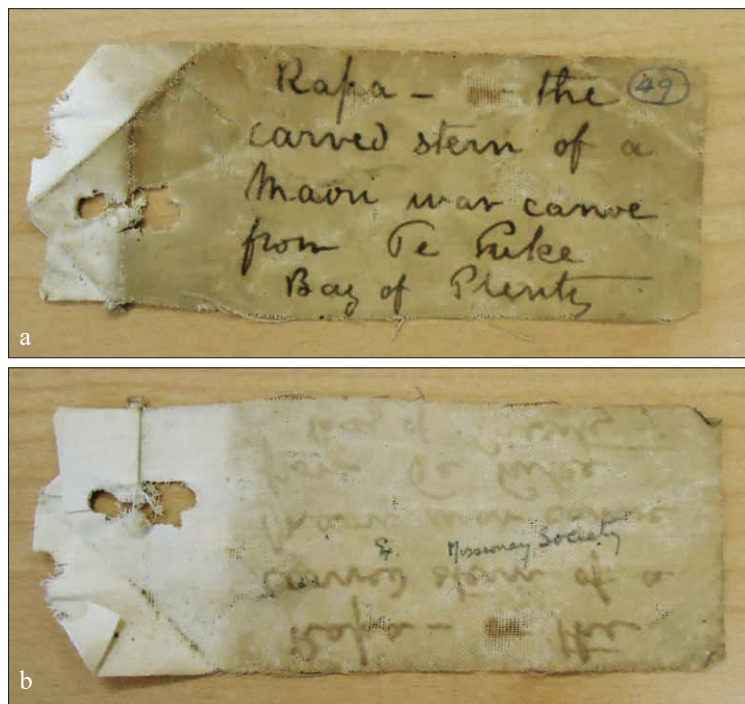 Rapa – the 49
carved stern of a
Maori war canoe
from Te Puke
Bay of Plenty
a
& Missionary Society
b